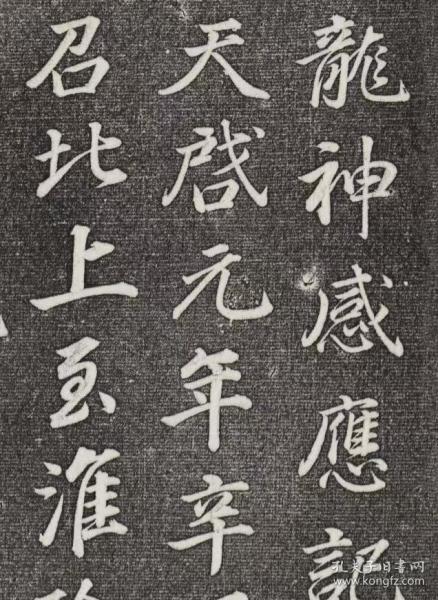 龍神感應記
天啓元年辛
召北上至淮
孔夫子旧书网
www.kongfz.com